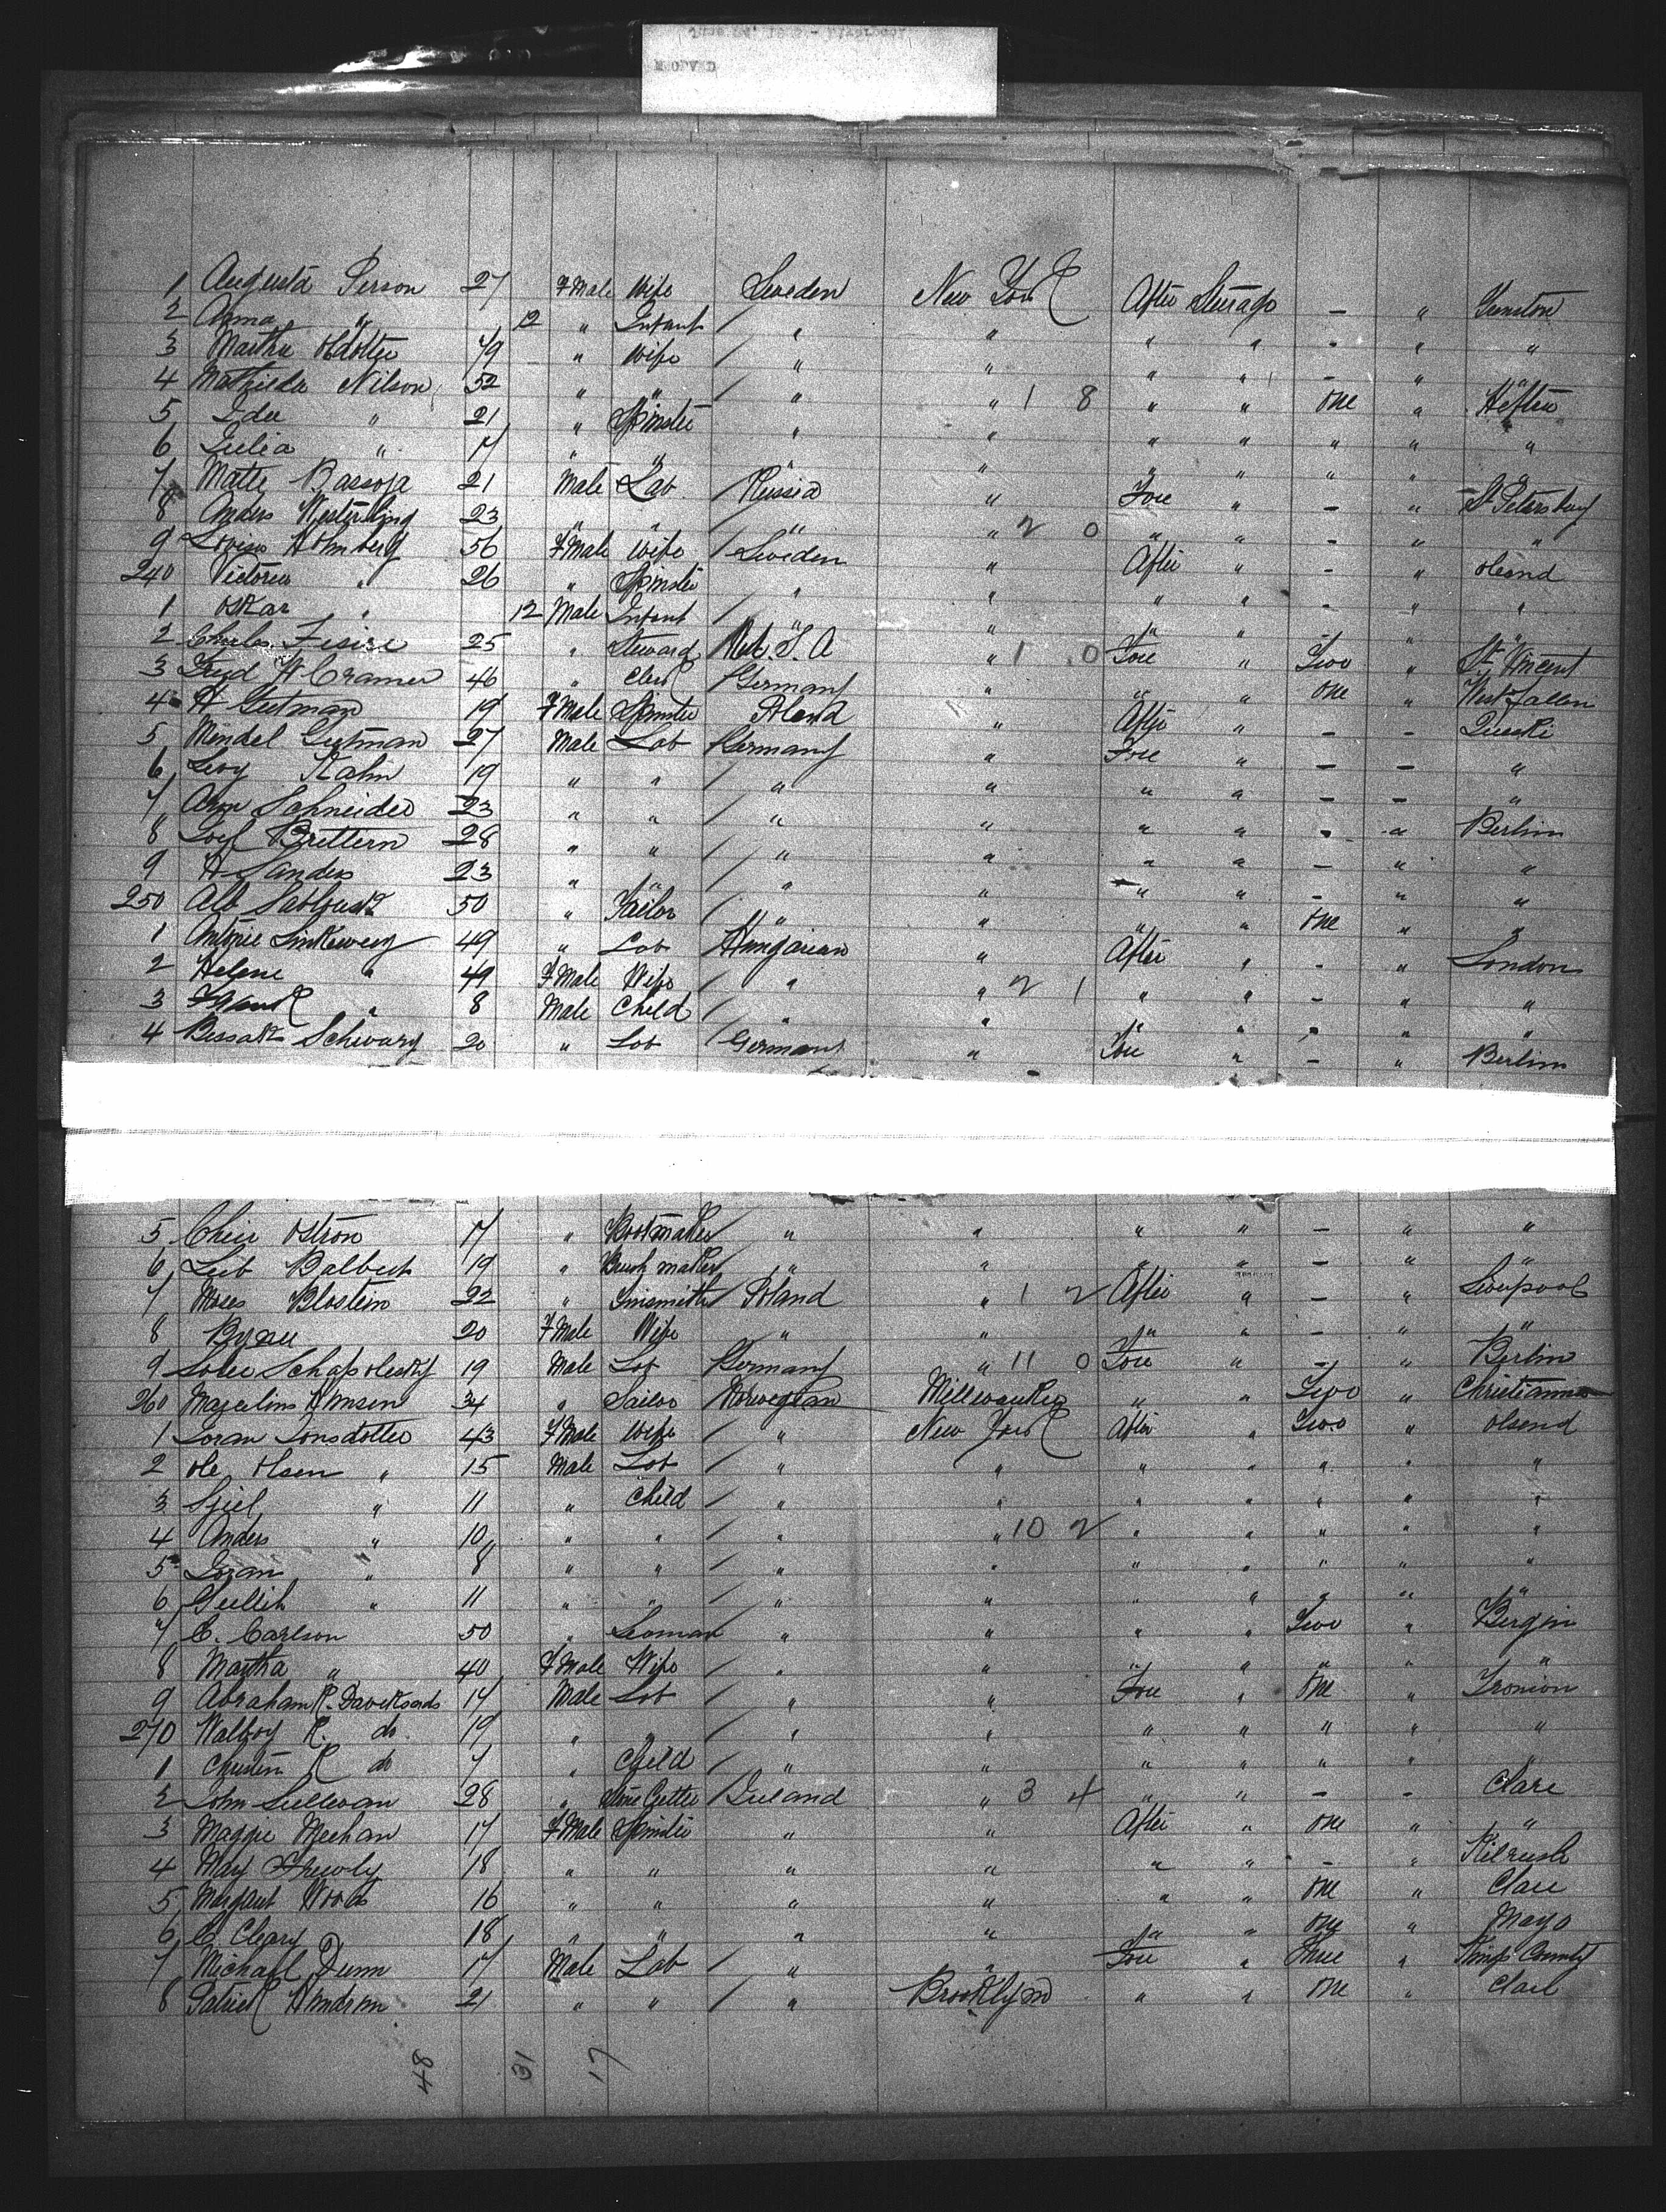 1 Augusta Person 27 F Male Wife Sweden New York After Steerage –
2 Anna " 12 " Infant " " " " – " "
3 Martha 49 " Wife " " " " – " "
4 Mathilda Nilson 52 " " " " 1 8 " " One "
5 Ida " 21 " Spinster " " " " " " "
6 Julia " 17 " " " " " " " " "
7 Matts Bassoja 21 Male Lab Russia " Fore " – " St Petersburg
8 Anders Westerling 23 " " " " 2 0 " " – " "
9 Lovisa Holmberg 56 F Male Wife Sweden " After " – "
240 Victoria " 26 " Spinster " " " " – " "
1 Oskar " 12 Male Infant " " " " – " "
2 Charles 25 " Steward U.S.A " 1 0 Fore " Two " St Vincent
3 Fred H Cramer 46 " Clerk Germany " " " One "
4 H Gutman 19 F Male Spinster Poland " After " – –
5 Mendel Gutman 27 Male Lab Germany " Fore " – – "
6 Levy Kahn 19 " " " " " " – – "
7 Aron Schneider 23 " " " " " " – " Berlin
8 Brettern 28 " " " " " " – " "
9 H Sanders 23 " " " " " " – " "
250 Alb 50 " Tailor " " " " One " "
1 Antonie 49 " Lab Hungarian " After " – " London
2 Helene " 49 F Male Wife " " 2 1 " " – " "
3 Frank " 8 Male Child " " " " – " "
4 Schwarz 20 " Lab Germany " Fore " – " Berlin
5 Ostron 17 " Bootmaker " " " " – " "
6 Leib Balbert 19 " Brush maker " " " " – " "
7 Moses Blostein 22 " Tinsmith Poland " 1 2 After " – " Liverpool
8 20 F Male Wife " " " " – " "
9 Schapolesky 19 Male Lab Germany " 11 0 Fore " – " Berlin
260 Marcelins Hansen 34 " Sailor Norwegian Millwaukee " " Two " Christiania
1 Goran Jonsdotter 43 F Male Wife " New York After " Two "
2 Ole Olsen " 15 Male Lab " " " " " " "
3 " 11 " Child " " " " " " "
4 Anders " 10 " " " " 10 2 " " " " "
5 Goran " 8 " " " " " " " " "
6 " 11 " " " " " " " " "
7 C. Carlson 50 " Seaman " " " " Two " Bergin
8 Martha " 40 F Male Wife " " " " " " "
9 Abraham K. 14 Male Lab " " Fore " One "
270 Walboy K. do 19 " " " " " " " " "
1 K do 7 " Child " " " " " "
2 John Sullivan 28 " Ireland " 3 4 " " – – Clare
3 Maggie Meehan 17 F Male Spinster " " After " One " "
4 May 18 " " " " " " – " Kilrush
5 Margaret Woods 16 " " " " " " One " Clare
6 C. Cleary 18 " " " " " " One " Mayo
7 Michael Dunn 17 Male Lab " " Fore " Three " Kings County
8 Patrick 21 " " " Brooklyn " " One " Clare
48 31 17